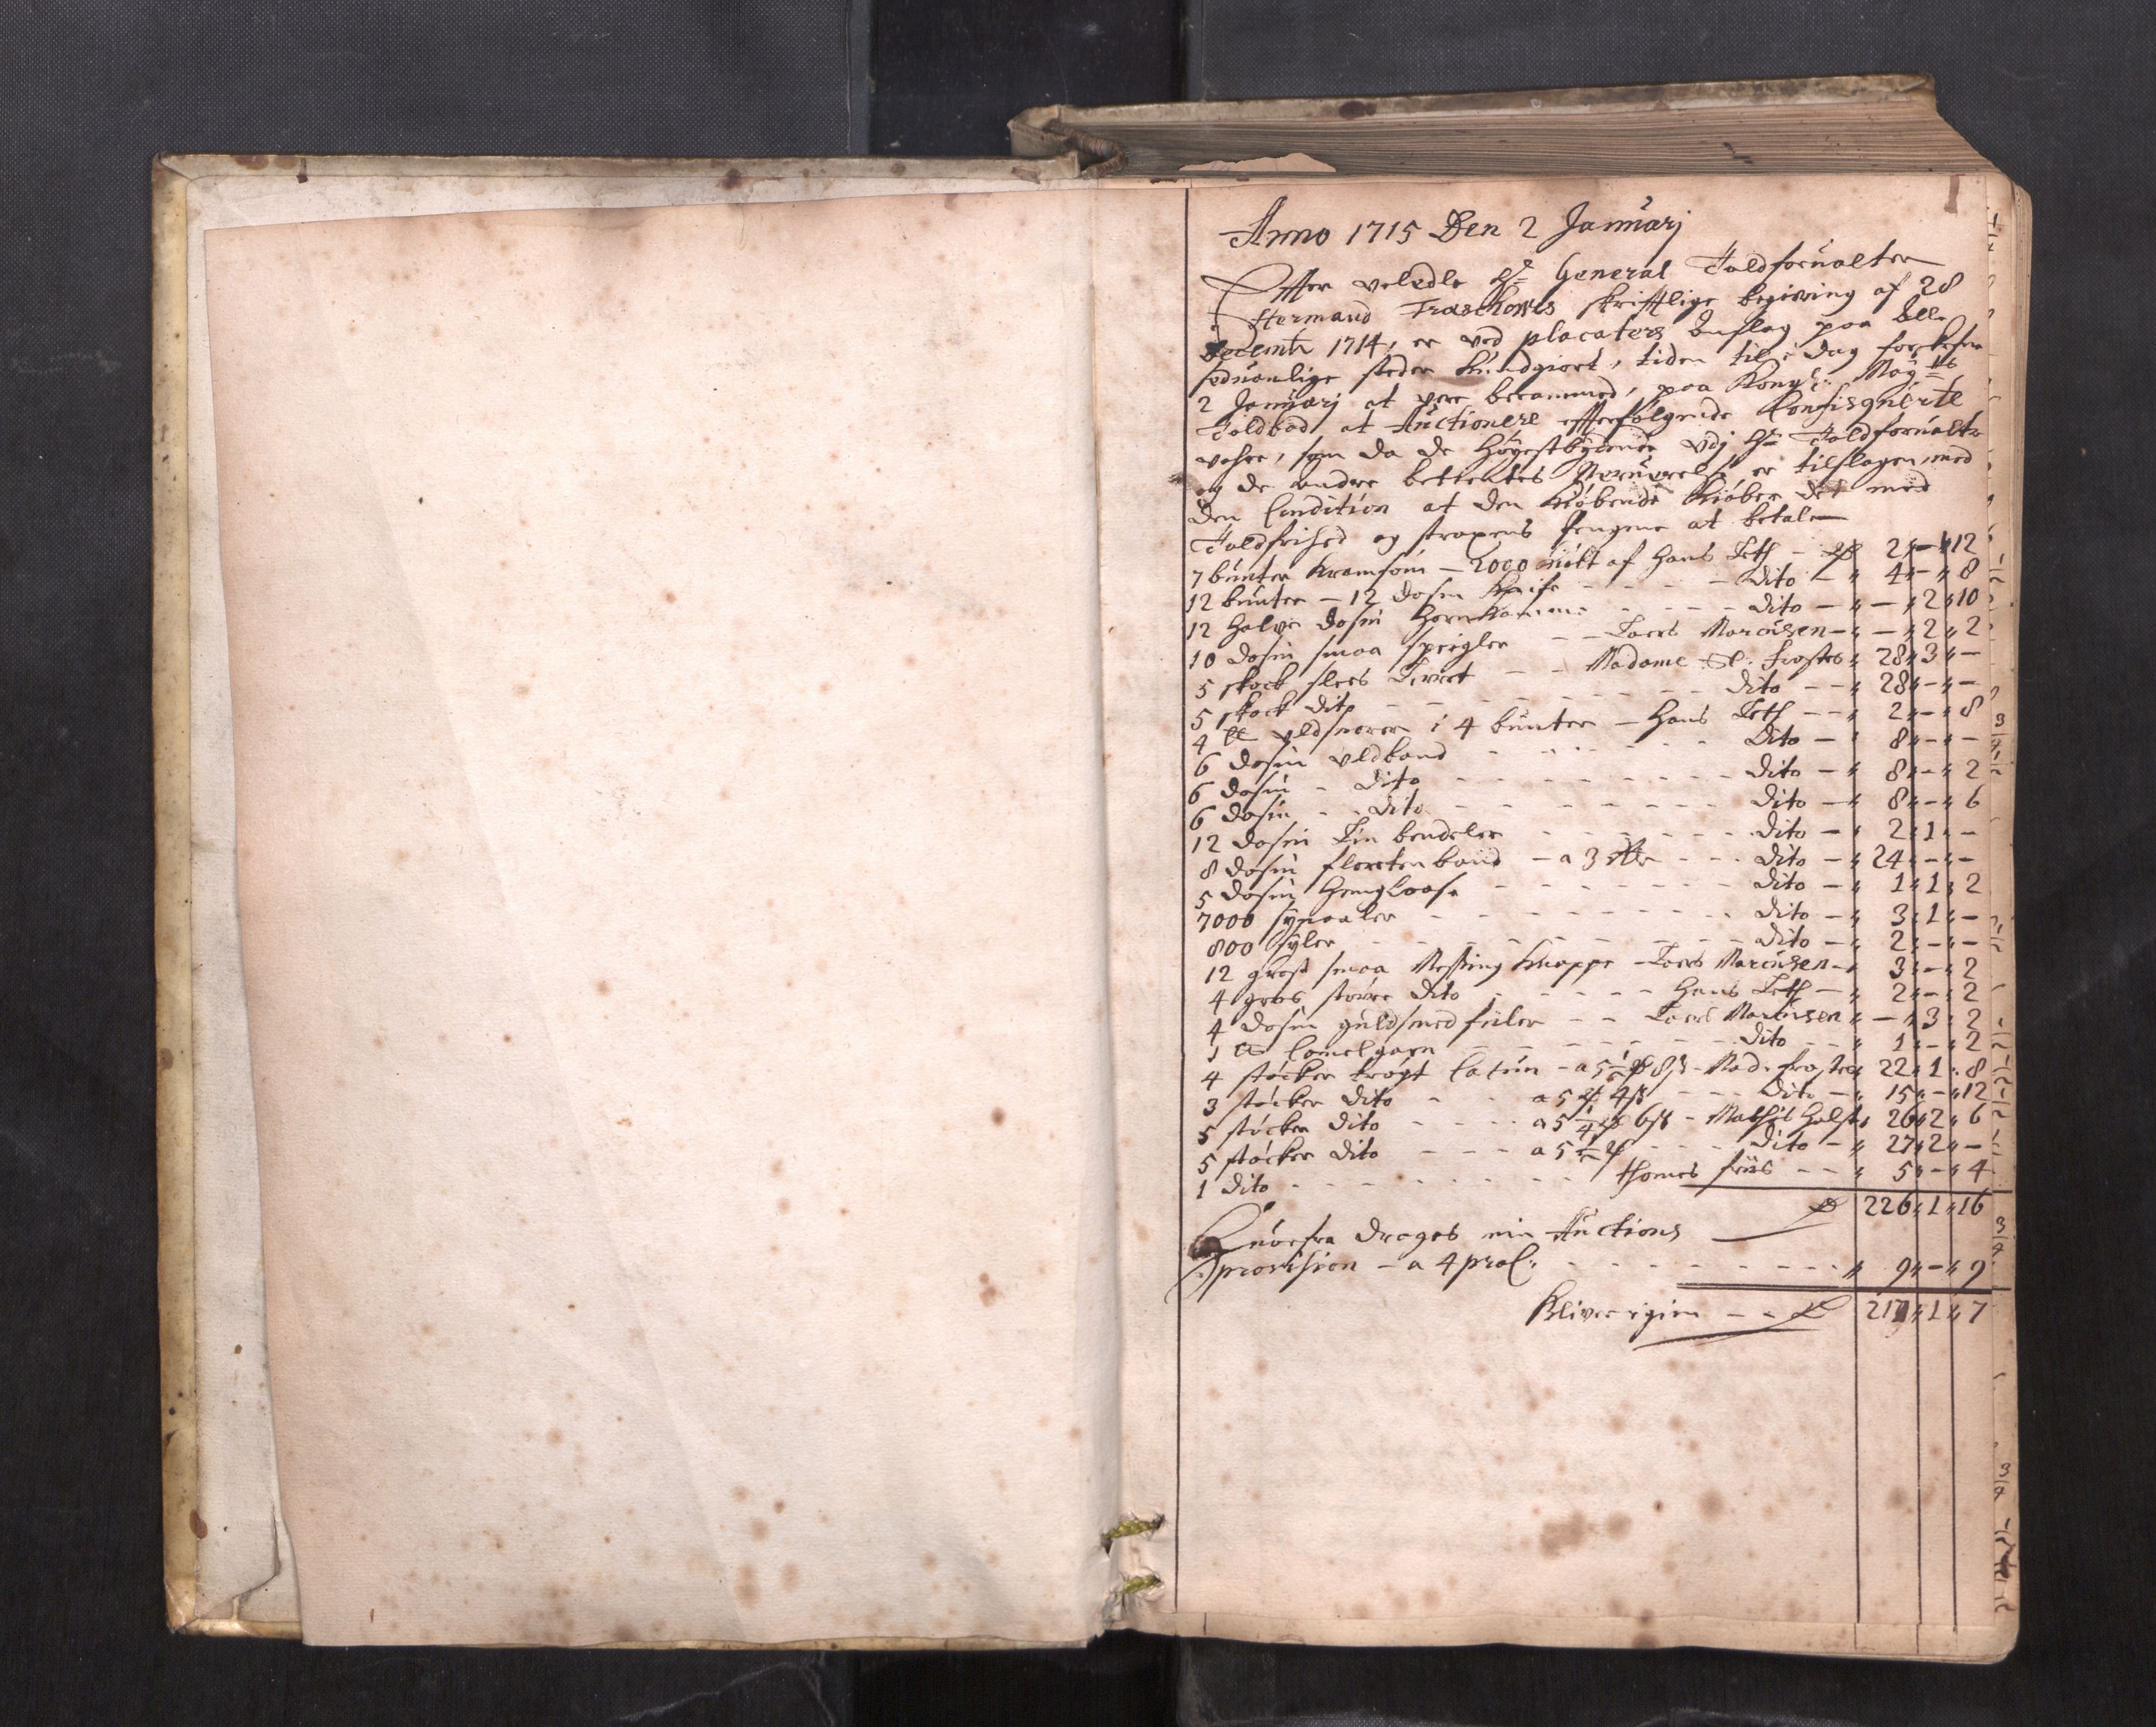 Anno 1715 Den 2 Januarj
Effter veledle Hr General Toldforvalter
Hermand Traschows skrifftlige begiering af 28
Decembr 1714, er ved placaters Anslag paa alle
sedvanlige steder kundgiort, tiden til i dag
2 Januarj at vere berammed, paa Kongl: Mayts
Toldbod at Auctionere effterfølgende Confisquerte
vahre, som da de Høyestbydende vdj Hr Toldforvalter
og de andre betientes Nerverelse er tilslagen, med
den Condition at den Kiøbende Kiøber det med
Toldfrihed og straxens pengene at betale
7 bunter Kramsøm - 2000 af Hans Teth - 2 " - " 12
12 bunter - 12 dosin Knife - - - dito - " 4 " - " 8
12 halve dosin Hornkamme - - - dito - " - " 2 " 10
10 dosin smaa speigler - - Laers Marcusen - " - " 2 " 2
5 skock slees Lerret - - Madame Sl: frostes " 28 " 3 " -
5 skock dito - - - dito - - " 28 " - " -
4 ℔ vldsnorer i 4 bunter - Hans Teth - - " 2 " - " 8
6 dosin vldband - - - dito - " 8 " - " -
6 dosin - dito - - - dito - " 8 " - " 2
6 dosin - dito - - - dito - " 8 " - " 6
12 dosin Lin bendeler - - - dito - " 2 " 1 " -
8 dosin floretenband - a 3 - - dito - " 24 " - " -
5 dosin Henglaase - - - dito - " 1 " 1 " 2
7000 synaaler - - - dito - " 3 " 1 " -
800 syler - - - dito - " 2 " - " -
12 gross smaa Messing Knappe - Laers Marcusen - " 3 " - " 2
4 gros større dito - - - Hans Teth - " 2 " - " 2
4 dosin guldsmed fiiler - - Laers Marcusen " - " 3 " 2
1 ℔ Camelgarn - - - dito - - " 1 " - " 2
4 støcker trøgt Catun - a 5½ 8 ß - Mad. frostes 22 " 1 " 8
3 støcker dito - - a 5 4 ß - - - dito - " 15 " - " 12
5 støcker dito - - - a 5¼ 6 ß - Mathis Holst " 26 " 2 " 6
5 støcker dito - - - a 5½ - - dito - " 27 " 2 " -
1 dito - - - thomes friis - - " 5 " - " 4
226 " 1 " 16
Hvorfra drages min Auctions
provision - a 4 proC: - - - " 9 " - " 9
bliver igien - - 217 " 1 " 7